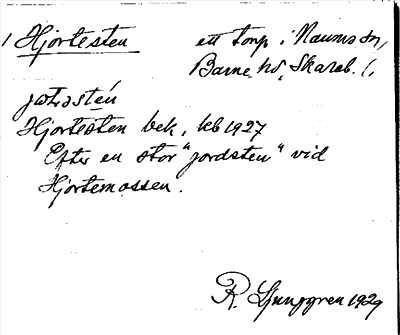 1 Hjortesten ett torp i Naums sn,
Barne hd, Skarab. l.
jωt.əstén
Hjortesten bek. kb 1927
Efter en stor "jordsten" vid
Hjortemossen.
R. Ljunggren 1929